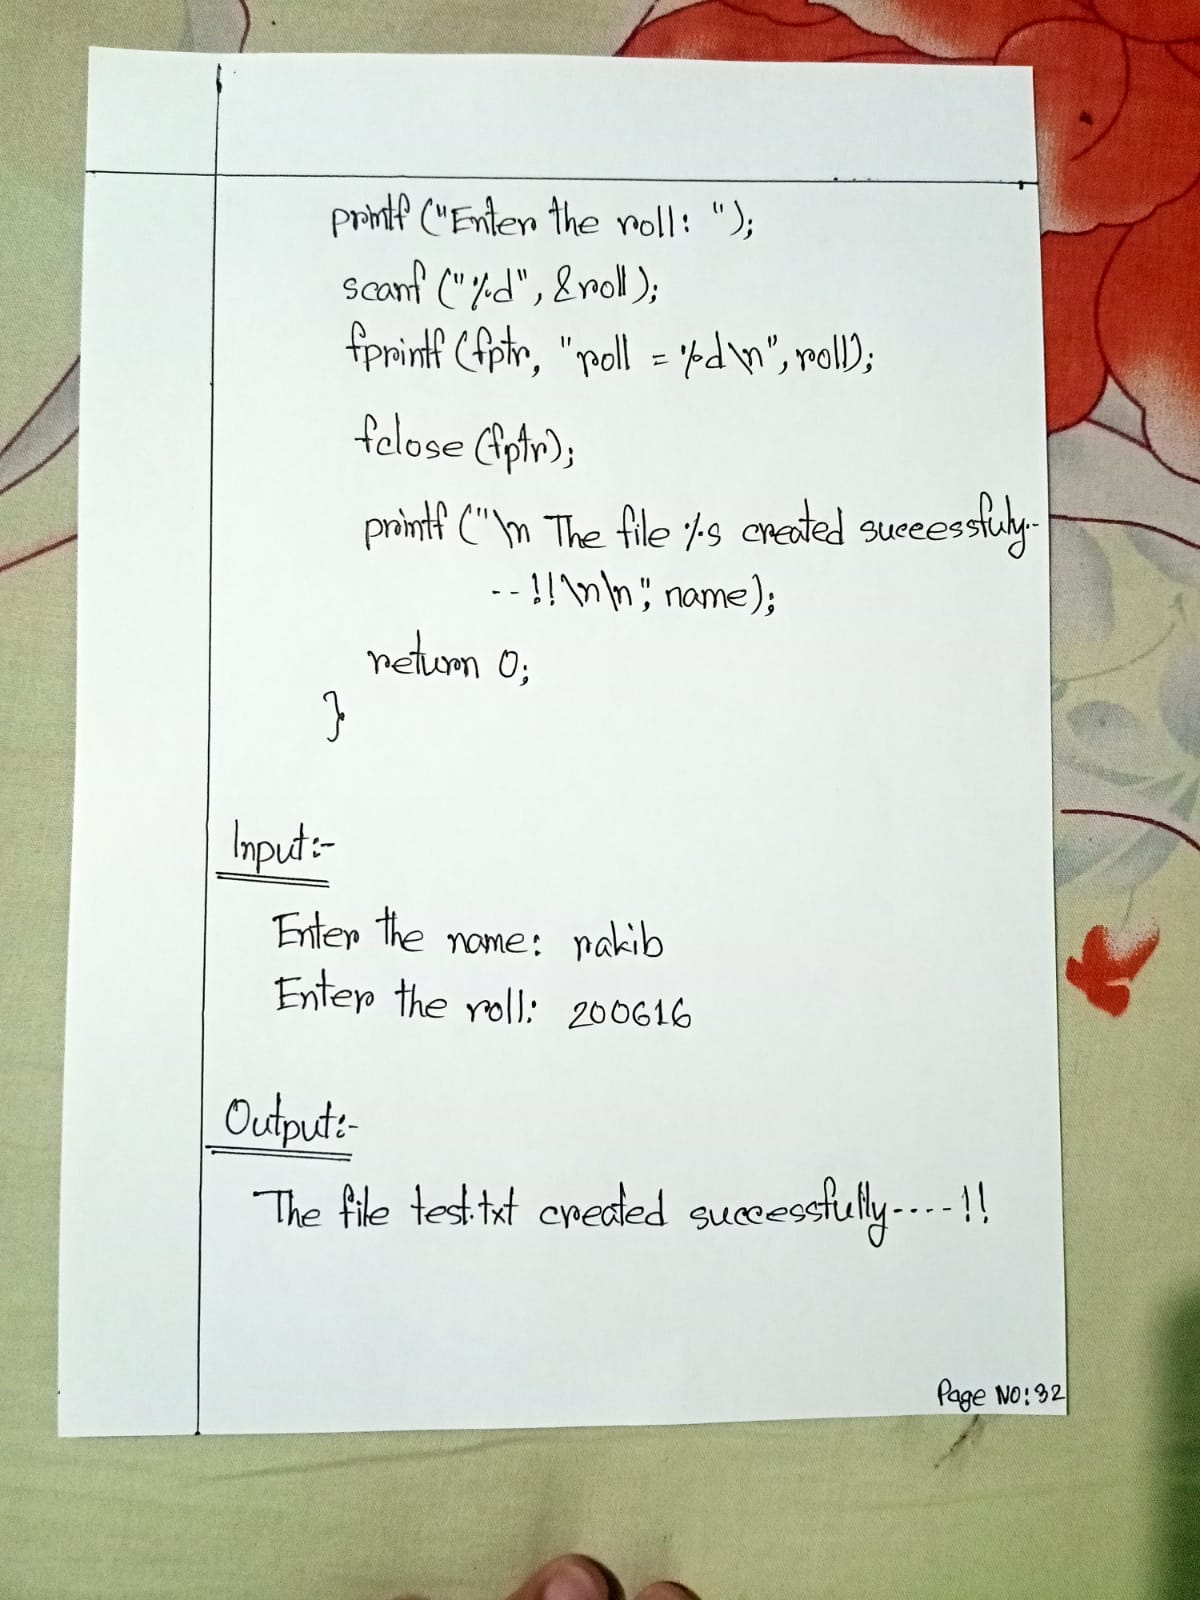 printf ("Enter the roll: ");
scanf ("%d", &roll);
fprintf (fptr, "roll = %d\n", roll);
fclose (fptr);
printf ("\n The file %s created successfuly--
--!!\n\n", name);
return 0;
}
Input:-
Enter the name: rakib
Enter the roll: 200616
Output:-
The file test.txt created successfully----!!
Page NO: 32